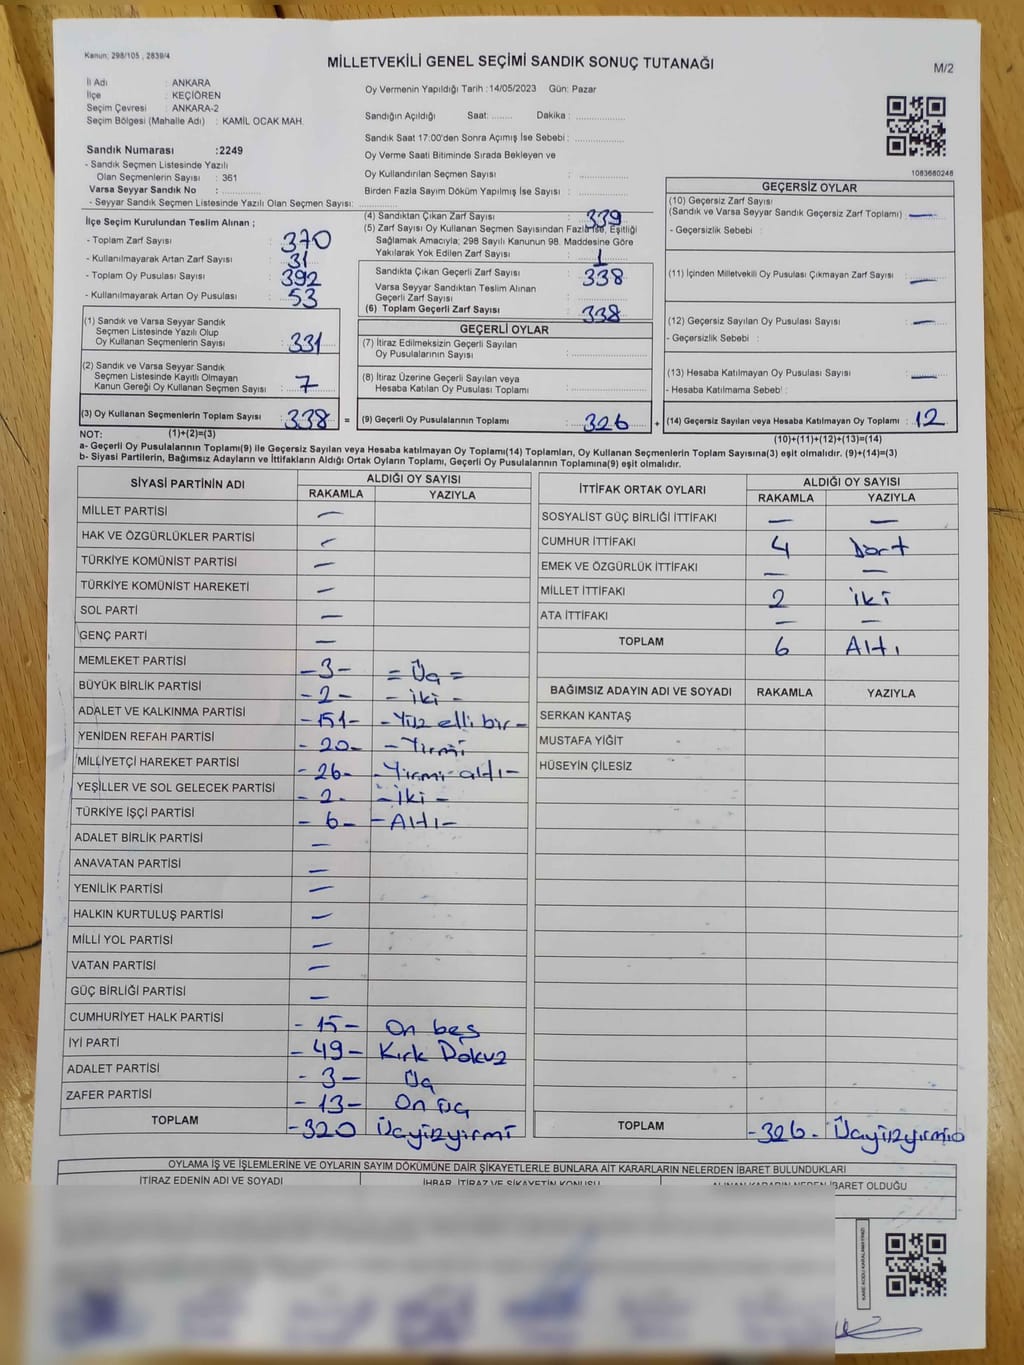 Kanun; 298/105 , 2839/4
MİLLETVEKİLİ GENEL SEÇİMİ SANDIK SONUÇ TUTANAĞI
M/2
İl Adı : ANKARA
İlçe : KEÇİÖREN
Seçim Çevresi : ANKARA-2
Seçim Bölgesi (Mahalle Adı) : KAMİL OCAK MAH.
Sandık Numarası :2249
- Sandık Seçmen Listesinde Yazılı
Olan Seçmenlerin Sayısı : 361
Varsa Seyyar Sandık No :
- Seyyar Sandık Seçmen Listesinde Yazılı Olan Seçmen Sayısı:
Oy Vermenin Yapıldığı Tarih :14/05/2023 Gün: Pazar
Sandığın Açıldığı Saat: ........ Dakika : ....................
Sandık Saat 17:00'den Sonra Açımış İse Sebebi : ....................
Oy Verme Saati Bitiminde Sırada Bekleyen ve
Oy Kullandırılan Seçmen Sayısı : ....................
Birden Fazla Sayım Döküm Yapılmış İse Sayısı : ....................
1083680246
İlçe Seçim Kurulundan Teslim Alınan ;
- Toplam Zarf Sayısı : 370
- Kullanılmayarak Artan Zarf Sayısı : 31
- Toplam Oy Pusulası Sayısı : 392
- Kullanılmayarak Artan Oy Pusulası : 53
(1) Sandık ve Varsa Seyyar Sandık
Seçmen Listesinde Yazılı Olup
Oy Kullanan Seçmenlerin Sayısı : 331
(2) Sandık ve Varsa Seyyar Sandık
Seçmen Listesinde Kayıtlı Olmayan
Kanun Gereği Oy Kullanan Seçmen Sayısı : 7
(3) Oy Kullanan Seçmenlerin Toplam Sayısı : 338 =
(1)+(2)=(3)
(4) Sandıktan Çıkan Zarf Sayısı : 339
(5) Zarf Sayısı Oy Kullanan Seçmen Sayısından Fazla ise, Eşitliği
Sağlamak Amacıyla; 298 Sayılı Kanunun 98. Maddesine Göre
Yakılarak Yok Edilen Zarf Sayısı : 1
Sandıkta Çıkan Geçerli Zarf Sayısı : 338
Varsa Seyyar Sandıktan Teslim Alınan
Geçerli Zarf Sayısı :
(6) Toplam Geçerli Zarf Sayısı : 338
GEÇERLİ OYLAR
(7) İtiraz Edilmeksizin Geçerli Sayılan
Oy Pusulalarının Sayısı :
(8) İtiraz Üzerine Geçerli Sayılan veya
Hesaba Katılan Oy Pusulası Toplamı :
(9) Geçerli Oy Pusulalarının Toplamı : 326 +
GEÇERSİZ OYLAR
(10) Geçersiz Zarf Sayısı
(Sandık ve Varsa Seyyar Sandık Geçersiz Zarf Toplamı) : —
- Geçersizlik Sebebi :
(11) İçinden Milletvekili Oy Pusulası Çıkmayan Zarf Sayısı : —
(12) Geçersiz Sayılan Oy Pusulası Sayısı : —
- Geçersizlik Sebebi :
(13) Hesaba Katılmayan Oy Pusulası Sayısı : —
- Hesaba Katılmama Sebebi :
(14) Geçersiz Sayılan veya Hesaba Katılmayan Oy Toplamı : 12
(10)+(11)+(12)+(13)=(14)
NOT:
a- Geçerli Oy Pusulalarının Toplamı(9) ile Geçersiz Sayılan veya Hesaba katılmayan Oy Toplamı(14) Toplamları, Oy Kullanan Seçmenlerin Toplam Sayısına(3) eşit olmalıdır. (9)+(14)=(3)
b- Siyasi Partilerin, Bağımsız Adayların ve İttifakların Aldığı Ortak Oyların Toplamı, Geçerli Oy Pusulalarının Toplamına(9) eşit olmalıdır.
SİYASİ PARTİNİN ADI ALDIĞI OY SAYISI
RAKAMLA YAZIYLA
MİLLET PARTİSİ —
HAK VE ÖZGÜRLÜKLER PARTİSİ —
TÜRKİYE KOMÜNİST PARTİSİ —
TÜRKİYE KOMÜNİST HAREKETİ —
SOL PARTİ —
GENÇ PARTİ —
MEMLEKET PARTİSİ -3- = Üç =
BÜYÜK BİRLİK PARTİSİ -2- - iki -
ADALET VE KALKINMA PARTİSİ -151- - Yüz elli bir -
YENİDEN REFAH PARTİSİ - 20- - Yirmi
MİLLİYETÇİ HAREKET PARTİSİ - 26- - Yirmi altı -
YEŞİLLER VE SOL GELECEK PARTİSİ - 2- - İki -
TÜRKİYE İŞÇİ PARTİSİ - 6- - Altı -
ADALET BİRLİK PARTİSİ —
ANAVATAN PARTİSİ —
YENİLİK PARTİSİ —
HALKIN KURTULUŞ PARTİSİ —
MİLLİ YOL PARTİSİ —
VATAN PARTİSİ —
GÜÇ BİRLİĞİ PARTİSİ —
CUMHURİYET HALK PARTİSİ - 15- On beş
İYİ PARTİ - 49- Kırk Dokuz
ADALET PARTİSİ - 3- Üç
ZAFER PARTİSİ - 13- On üç
TOPLAM -320 Üçyüzyirmi
İTTİFAK ORTAK OYLARI ALDIĞI OY SAYISI
RAKAMLA YAZIYLA
SOSYALİST GÜÇ BİRLİĞİ İTTİFAKI — —
CUMHUR İTTİFAKI 4 Dört
EMEK VE ÖZGÜRLÜK İTTİFAKI — —
MİLLET İTTİFAKI 2 iki
ATA İTTİFAKI — —
TOPLAM 6 Altı
BAĞIMSIZ ADAYIN ADI VE SOYADI RAKAMLA YAZIYLA
SERKAN KANTAŞ
MUSTAFA YİĞİT
HÜSEYİN ÇİLESİZ
TOPLAM -326-
OYLAMA İŞ VE İŞLEMLERİNE VE OYLARIN SAYIM DÖKÜMÜNE DAİR ŞİKAYETLERLE BUNLARA AİT KARARLARIN NELERDEN İBARET BULUNDUKLARI
İTİRAZ EDENİN ADI VE SOYADI İHBAR, İTİRAZ VE ŞİKAYETİN KONUSU ALINAN KARARIN NEDEN İBARET OLDUĞU
KARE KODU KARALAMAYINIZ!